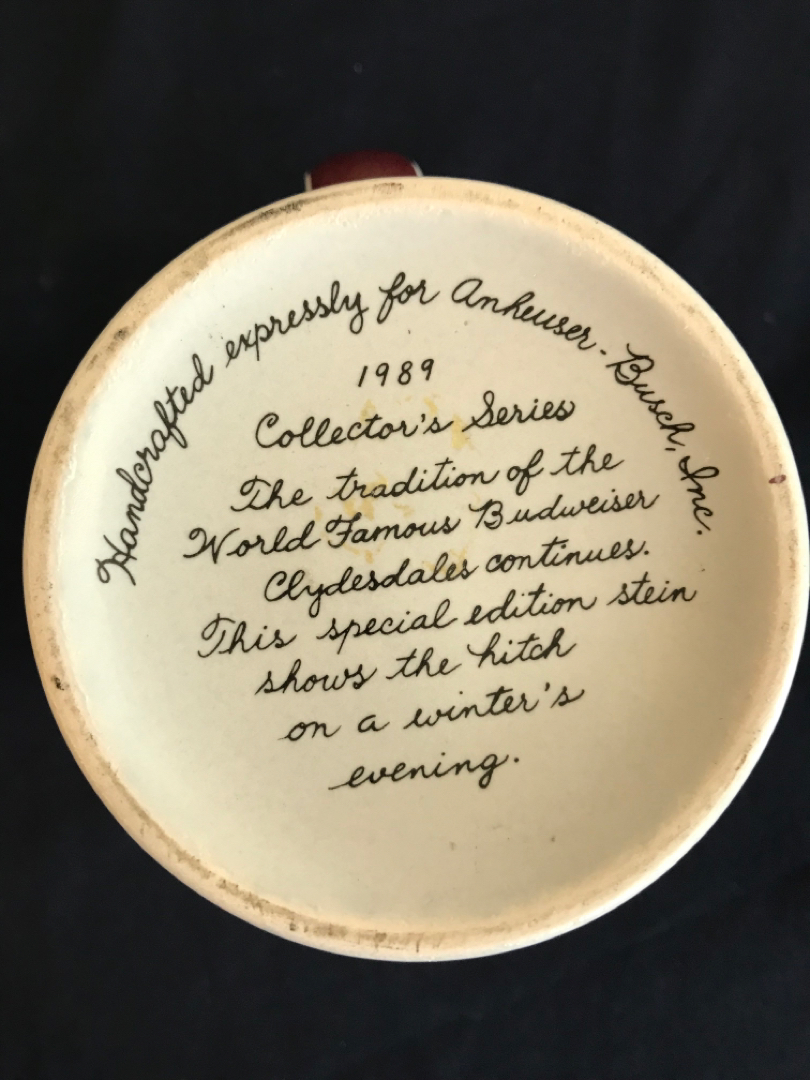 Handcrafted expressly for Anheuser-Busch, Inc.
1989
Collector's Series
The tradition of the
World Famous Budweiser
Clydesdales continues.
This special edition stein
shows the hitch
on a winter's
evening.